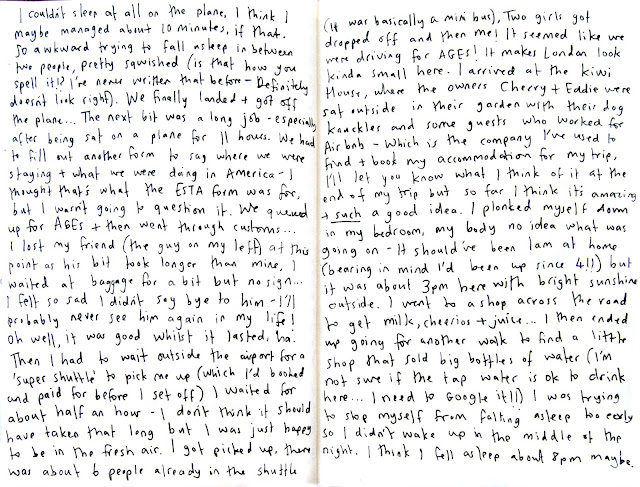 I couldn't sleep at all on the plane, I think I
maybe managed about 10 minutes, if that.
So awkward trying to fall asleep in between
two people, pretty squished (is that how you
spell it!? I've never written that before - Definitely
doesn't look right). We finally landed + got off
the plane... The next bit was a long job - especially
after being sat on a plane for 11 hours. We had
to fill out another form to say where we were
staying + what we were doing in America - I
thought that's what the ESTA form was for,
but I wasn't going to question it. We queued
up for AGEs + then went through customs...
I lost my friend (the guy on my left) at this
point as his bit took longer than mine, I
waited at baggage for a bit but no sign...
I felt so sad I didn't say bye to him - I'll
probably never see him again in my life!
Oh well, it was good whilst it lasted, ha.
Then I had to wait outside the airport for a
'super shuttle' to pick me up (which I'd booked
and paid for before I set off) I waited for
about half an hour - I don't think it should
have taken that long but I was just happy
to be in the fresh air. I got picked up, there
was about 6 people already in the shuttle
(It was basically a mini bus), Two girls got
dropped off and then me! It seemed like we
were driving for AGES! It makes London look
kinda small here. I arrived at the kiwi
House, where the owners Cherry + Eddie were
sat outside in their garden with their dog
knuckles and some guests who worked for
Air bnb - which is the company I've used to
find + book my accommodation for my trip,
I'll let you know what I think of it at the
end of my trip but so far I think its amazing
+ such a good idea. I plonked myself down
in my bedroom, my body no idea what was
going on - It should've been 1am at home
(bearing in mind I'd been up since 4!!) but
it was about 3pm here with bright sunshine
outside. I went to a shop across the road
to get milk, cheerios + juice... I then ended
up going for another walk to find a little
shop that sold big bottles of water (I'm
not sure if the tap water is ok to drink
here... I need to Google it!!) I was trying
to stop myself from falling asleep too early
so I didn't wake up in the middle of the
night. I think I fell asleep about 8pm maybe.